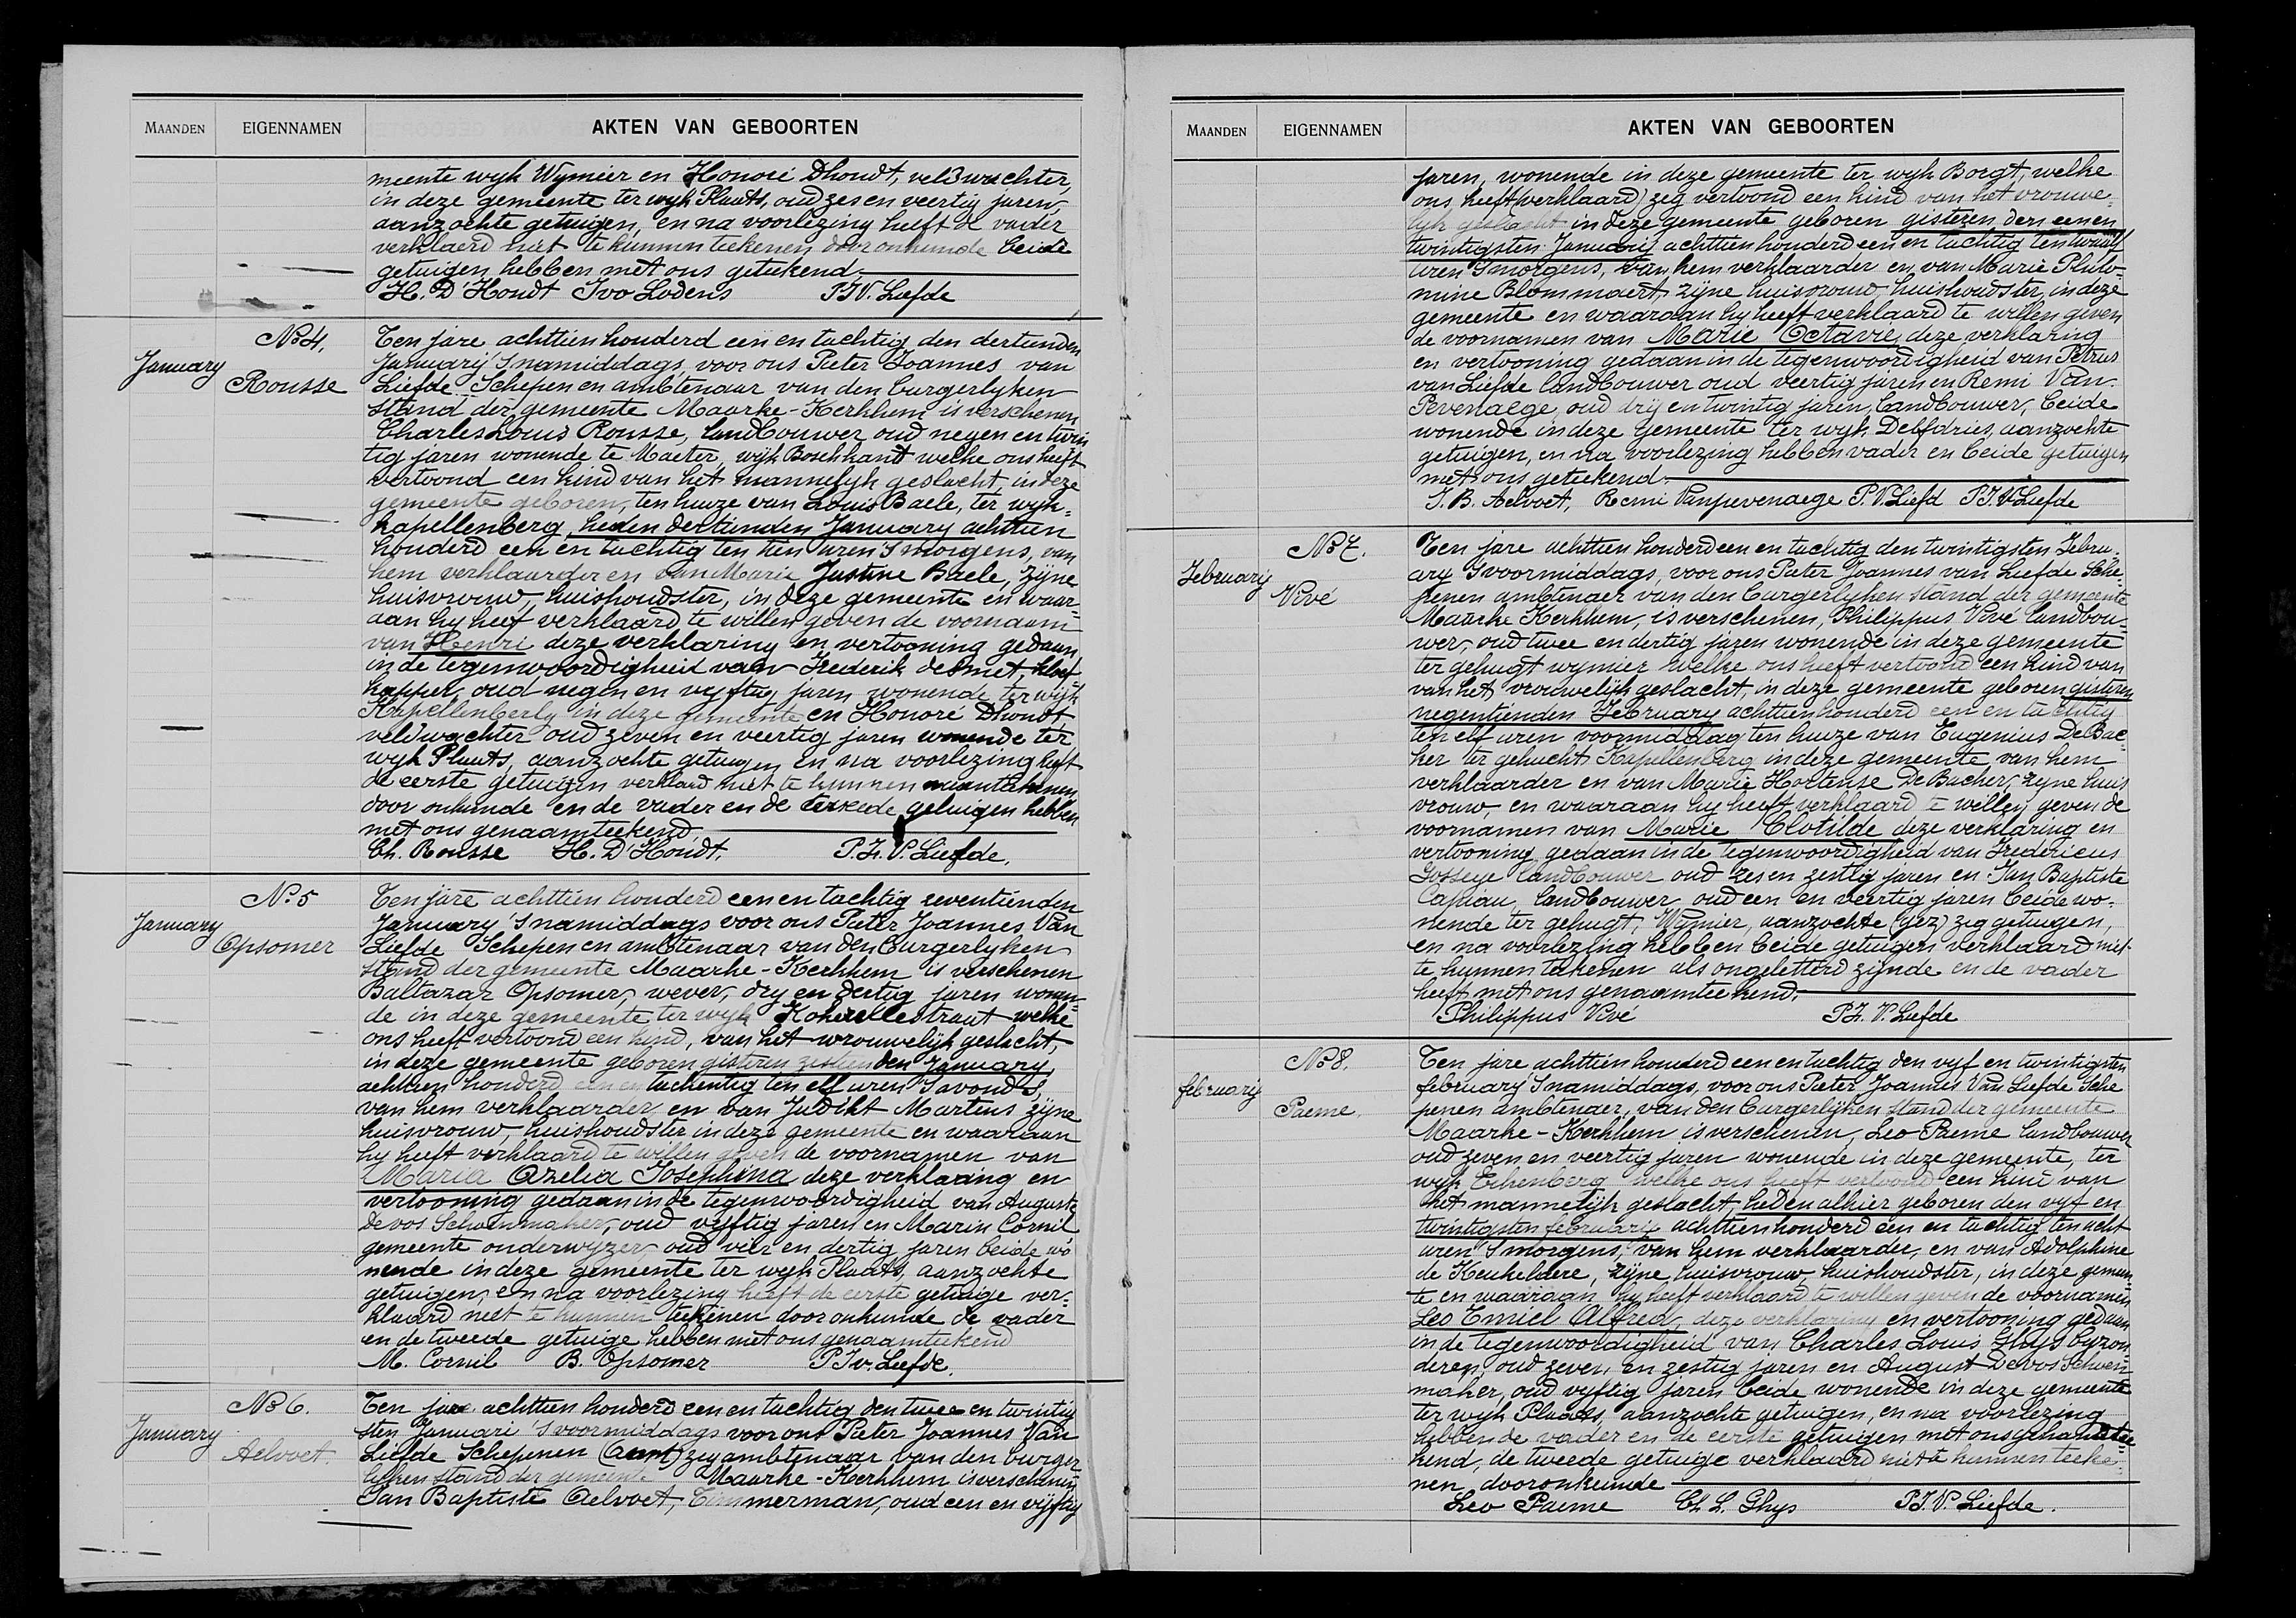 MAANDEN EIGENNAMEN AKTEN VAN GEBOORTEN
meente wyk Wymier en Honoré Dhondt, veldwachter,
in deze gemeente ter wyk Plaats, oud zes en veertig jaren,
aanzochte getuigen, en na voorlezing heeft de vader
verklaerd niet te kunnen teekenen door onkunde beide
getuigen hebben met ons geteekend.
H. D'Hondt Ivo Lodens P.J.V. Liefde
January
No 4.
Rousse
Ten jare achttien honderd een en tachtig den dertienden
January 's namiddags, voor ons Pieter Joannes van
Liefde Schepen en ambtenaar van den burgerlyken
stand der gemeente Maarke-Kerkhem is verschenen
Charles Louis Rousse, landbouwer oud negen en twin
tig jaren wonende te Maeter, wijk Boschkant welke ons heeft
vertoond een kind van het mannelyk geslacht, in deze
gemeente geboren, ten huize van Louis Baele, ter wyk
Kapellenberg, heden dertienden January achttien
honderd een en tachtig ten tien uren 's morgens, van
hem verklaarder en van Marie Justine Baele, zyne
huisvrouw, huishoudster, in deze gemeente en waar-
aan hy heeft verklaard te willen geven de voornaam
van Henri deze verklaring en vertooning gedaan
in de tegenwoordigheid van Frederik desmet, klot
kapper, oud negen en vyftig jaren wonende ter wijk
Kapellenberg in deze gemeente en Honoré Dhondt
veldwachter oud zeven en veertig jaren wonende ter
wyk Plaats, aanzochte getuigen en na voorlezing heeft
de eerste getuigen verklaard niet te kunnen naamtekenen
door onkunde en de vader en de getuigen hebben
met ons genaamteekend.
Ch. Rousse H. D'Hondt. P.J.V. Liefde.
January
No 5
Opsomer
Ten jare achttien honderd een en tachtig zeventienden
January 's namiddags voor ons Pieter Joannes Van
Liefde Schepen en ambtenaar van den burgerlyken
stand der gemeente Maarke-Kerkhem is verschenen
Baltazar Opsomer, wever, dry en dertig jaren wonen-
de in deze gemeente ter wyk Kokerellestraat welke
ons heeft vertoond een kind, van het vrouwelijk geslacht,
in deze gemeente geboren gisteren zestienden January
achttien honderd een en tachentig ten elf uren 's avonds,
van hem verklaarder en van Juldikt Martens zijne
huisvrouw, huishoudster in deze gemeente en waaraan
hy heeft verklaard te willen geven de voornamen van
Maria Ozelia Josephina deze verklaaing en
vertooning gedaan in de tegenwoordigheid van Auguste
de vos Schoenmaker, oud vyftig jaren en Marin Cornil
gemeente onderwyzer oud vier en dertig jaren beide wo
nende in deze gemeente ter wyk Plaats, aanzochte
getuigen, en na voorlezing heeft de eerste getuige ver-
klaard niet te kunnen teekenen door onkunde de vader
en de tweede getuige hebben met ons genaamteekend
M. Cornil B. Opsomer P J v. Liefde.
January
No 6.
Aelvoet.
Ten jare achttien honderd een en tachtig den twee en twintig
sten Januari 's voormiddags voor ons Pieter Joannes Van
Liefde Schepenen (amt) zeg ambtenaar van den burger
lyken stand der gemeente Maarke-Kerkhem is verschenen
Jan Baptiste Aelvoet, timmerman, oud een en vijftig
MAANDEN EIGENNAMEN AKTEN VAN GEBOORTEN
jaren, wonende in deze gemeente ter wyk Borgt, welke
ons heeft (verklaard) zeg vertoond een kind van het vrouwe-
lyk geslacht in deze gemeente geboren gisteren den een en
twintigsten January achttien honderd een en tachtig ten twaalf
uren 's morgens, van hem verklaarder en van Marie Philo-
mine Blommaert, zijne huisvrouw, huishoudster, in deze
gemeente en waaraan hy heeft verklaard te willen geven
de voornamen van Marie Octavie, deze verklaring
en vertooning gedaan in de tegenwoordigheid van Petrus
van Liefde landbouwer oud veertig jaren en Remi Van-
Pevenaege, oud drij en twintig jaren, landbouwer, beide
wonende in deze gemeente ter wyk Delfdries, aanzochte
getuigen, en na voorlezing hebben vader en beide getuigen
met ons geteekend.
J. B. Aelvoet, Remi Vanpevenaege P.V. Liefd P.J.V. Liefde
February
No 7.
Vivé
Ten jare achttien honderd een en tachtig den twintigsten Febru-
ary 's voormiddags, voor ons Pieter Joannes van Liefde Sche-
penen ambtenaer van den burgerlyken stand der gemeente
Maarke Kerkhem, is verschenen, Philippus Vivé landbou-
wer, oud twee en dertig jaren wonende in deze gemeente
ter gehugt wymier welke ons heeft vertoond een kind van
van het vrouwelijk geslacht, in deze gemeente geboren gisteren
negentienden February achttien honderd een en tachtig
ten elf uren voormiddag ten huize van Eugenius DeBac-
ker ter gehucht Kapellenberg in deze gemeente van hem
verklaarder en van Marie Hortense De Backer, zyne huis
vrouw, en waaraan hy heeft verklaard te willen geven de
voornamen van Marie Clotilde deze verklaring en
vertooning gedaan in de tegenwoordigheid van Fredericus
Gosseye landbouwer oud zes en zestig jaren en Jan Baptiste
Capiau, landbouwer oud een en veertig jaren beide wo-
nende ter gehugt, Wymier, aanzochte (gez) zeg getuigen,
en na voorlezing hebben beide getuigen verklaard niet
te kunnen tekenen als ongeletterd zijnde en de vader
heeft met ons genaamteekend.
Philippus Vivé P.J.V. Liefde
februarij
No 8.
Paeme.
Ten jare achttien honderd een en tachtig den vyf en twintigsten
february 's namiddags, voor ons Pieter Joannes Van Liefde Sche
penen ambtenaer, van den burgerlijken stand der gemeente
Maarke-Kerkhem is verschenen, Leo Paeme landbouwer
oud zeven en veertig jaren wonende in deze gemeente, ter
wyk Eikenberg welke ons heeft vertoond een kind van
het mannelijk geslacht, heden alhier geboren den vyf en
twintigsten februarij achttien honderd een en tachtig ten acht
uren 's morgens, van hem verklaarder, en van Adolphine
de Keukelaere, zijne huisvrouw huishoudster, in deze gemeen
te en waaraan hy heeft verklaard te willen geven de voornamen
Leo Emiel Alfred, deze verklaring en vertooning gedaan
in de tegenwoordigheid van Charles Louis Ghys byzon
deren, oud zeven en zestig jaren en August Devos Schoen-
maker, oud vyftig jaren beide wonende in deze gemeente
ter wyk Plaats, aanzochte getuigen, en na voorlezing
hebben de vader en de eerste getuigen met ons genaamtee-
kend, de tweede getuige verklaard niet te kunnen teeke-
nen door onkunde
Leo Paeme Ch. L. Ghys P.J.V. Liefde.